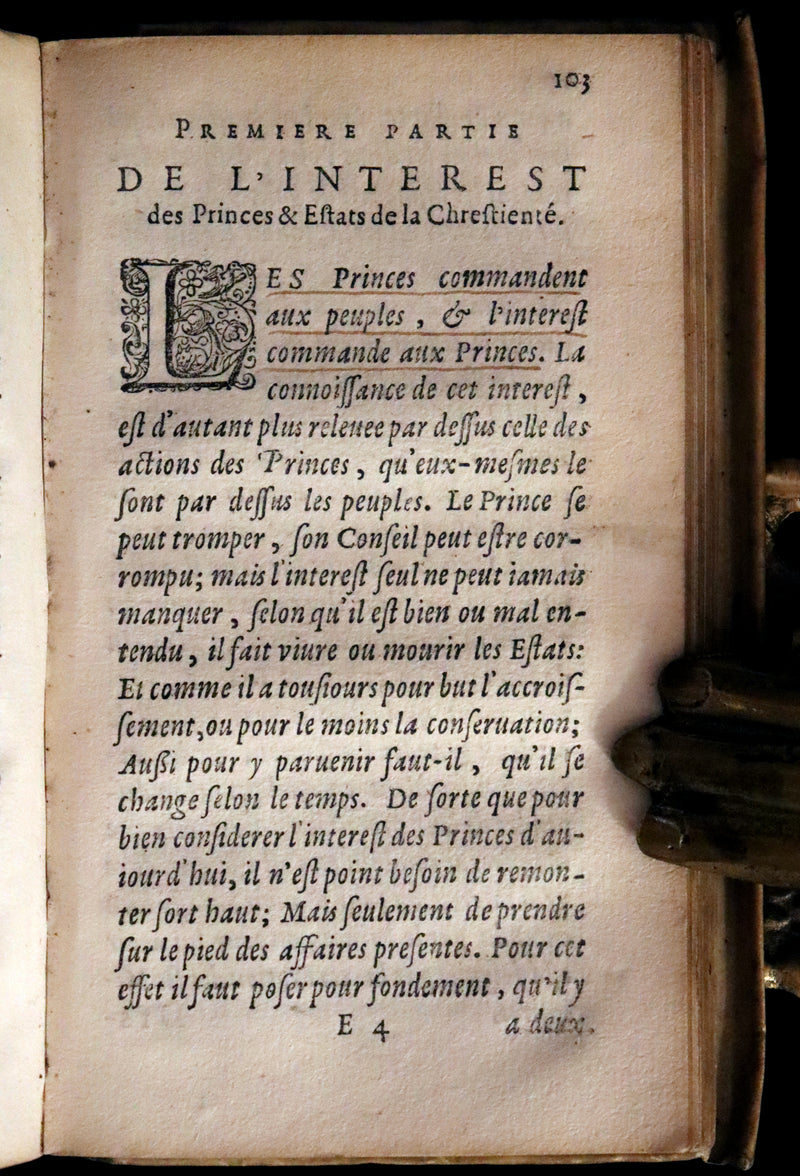 103
PREMIERE PARTIE
DE L'INTEREST
des Princes & Eſtats de la Chreſtienté.
LES Princes commandent
aux peuples, & l'intereſt
commande aux Princes. La
connoiſſance de cet intereſt,
eſt d'autant plus releuee par deſſus celle des
actions des Princes, qu'eux-meſmes le
ſont par deſſus les peuples. Le Prince ſe
peut tromper, ſon Conſeil peut eſtre cor-
rompu; mais l'intereſt ſeul ne peut iamais
manquer, ſelon qu'il eſt bien ou mal en-
tendu, il fait viure ou mourir les Eſtats:
Et comme il a touſiours pour but l'accroiſ-
ſement, ou pour le moins la conſeruation;
Auſſi pour y paruenir faut-il, qu'il ſe
change ſelon le temps. De ſorte que pour
bien conſiderer l'intereſt des Princes d'au-
iourd'hui, il n'eſt point beſoin de remon-
ter fort haut; Mais ſeulement de prendre
ſur le pied des affaires preſentes. Pour cet
effet il faut poſer pour fondement, qu'il y
E 4 a deux